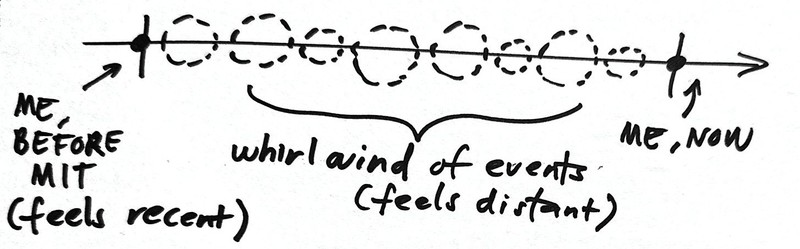 ME,
BEFORE
MIT
(feels recent)
whirlwind of events
(feels distant)
ME, NOW